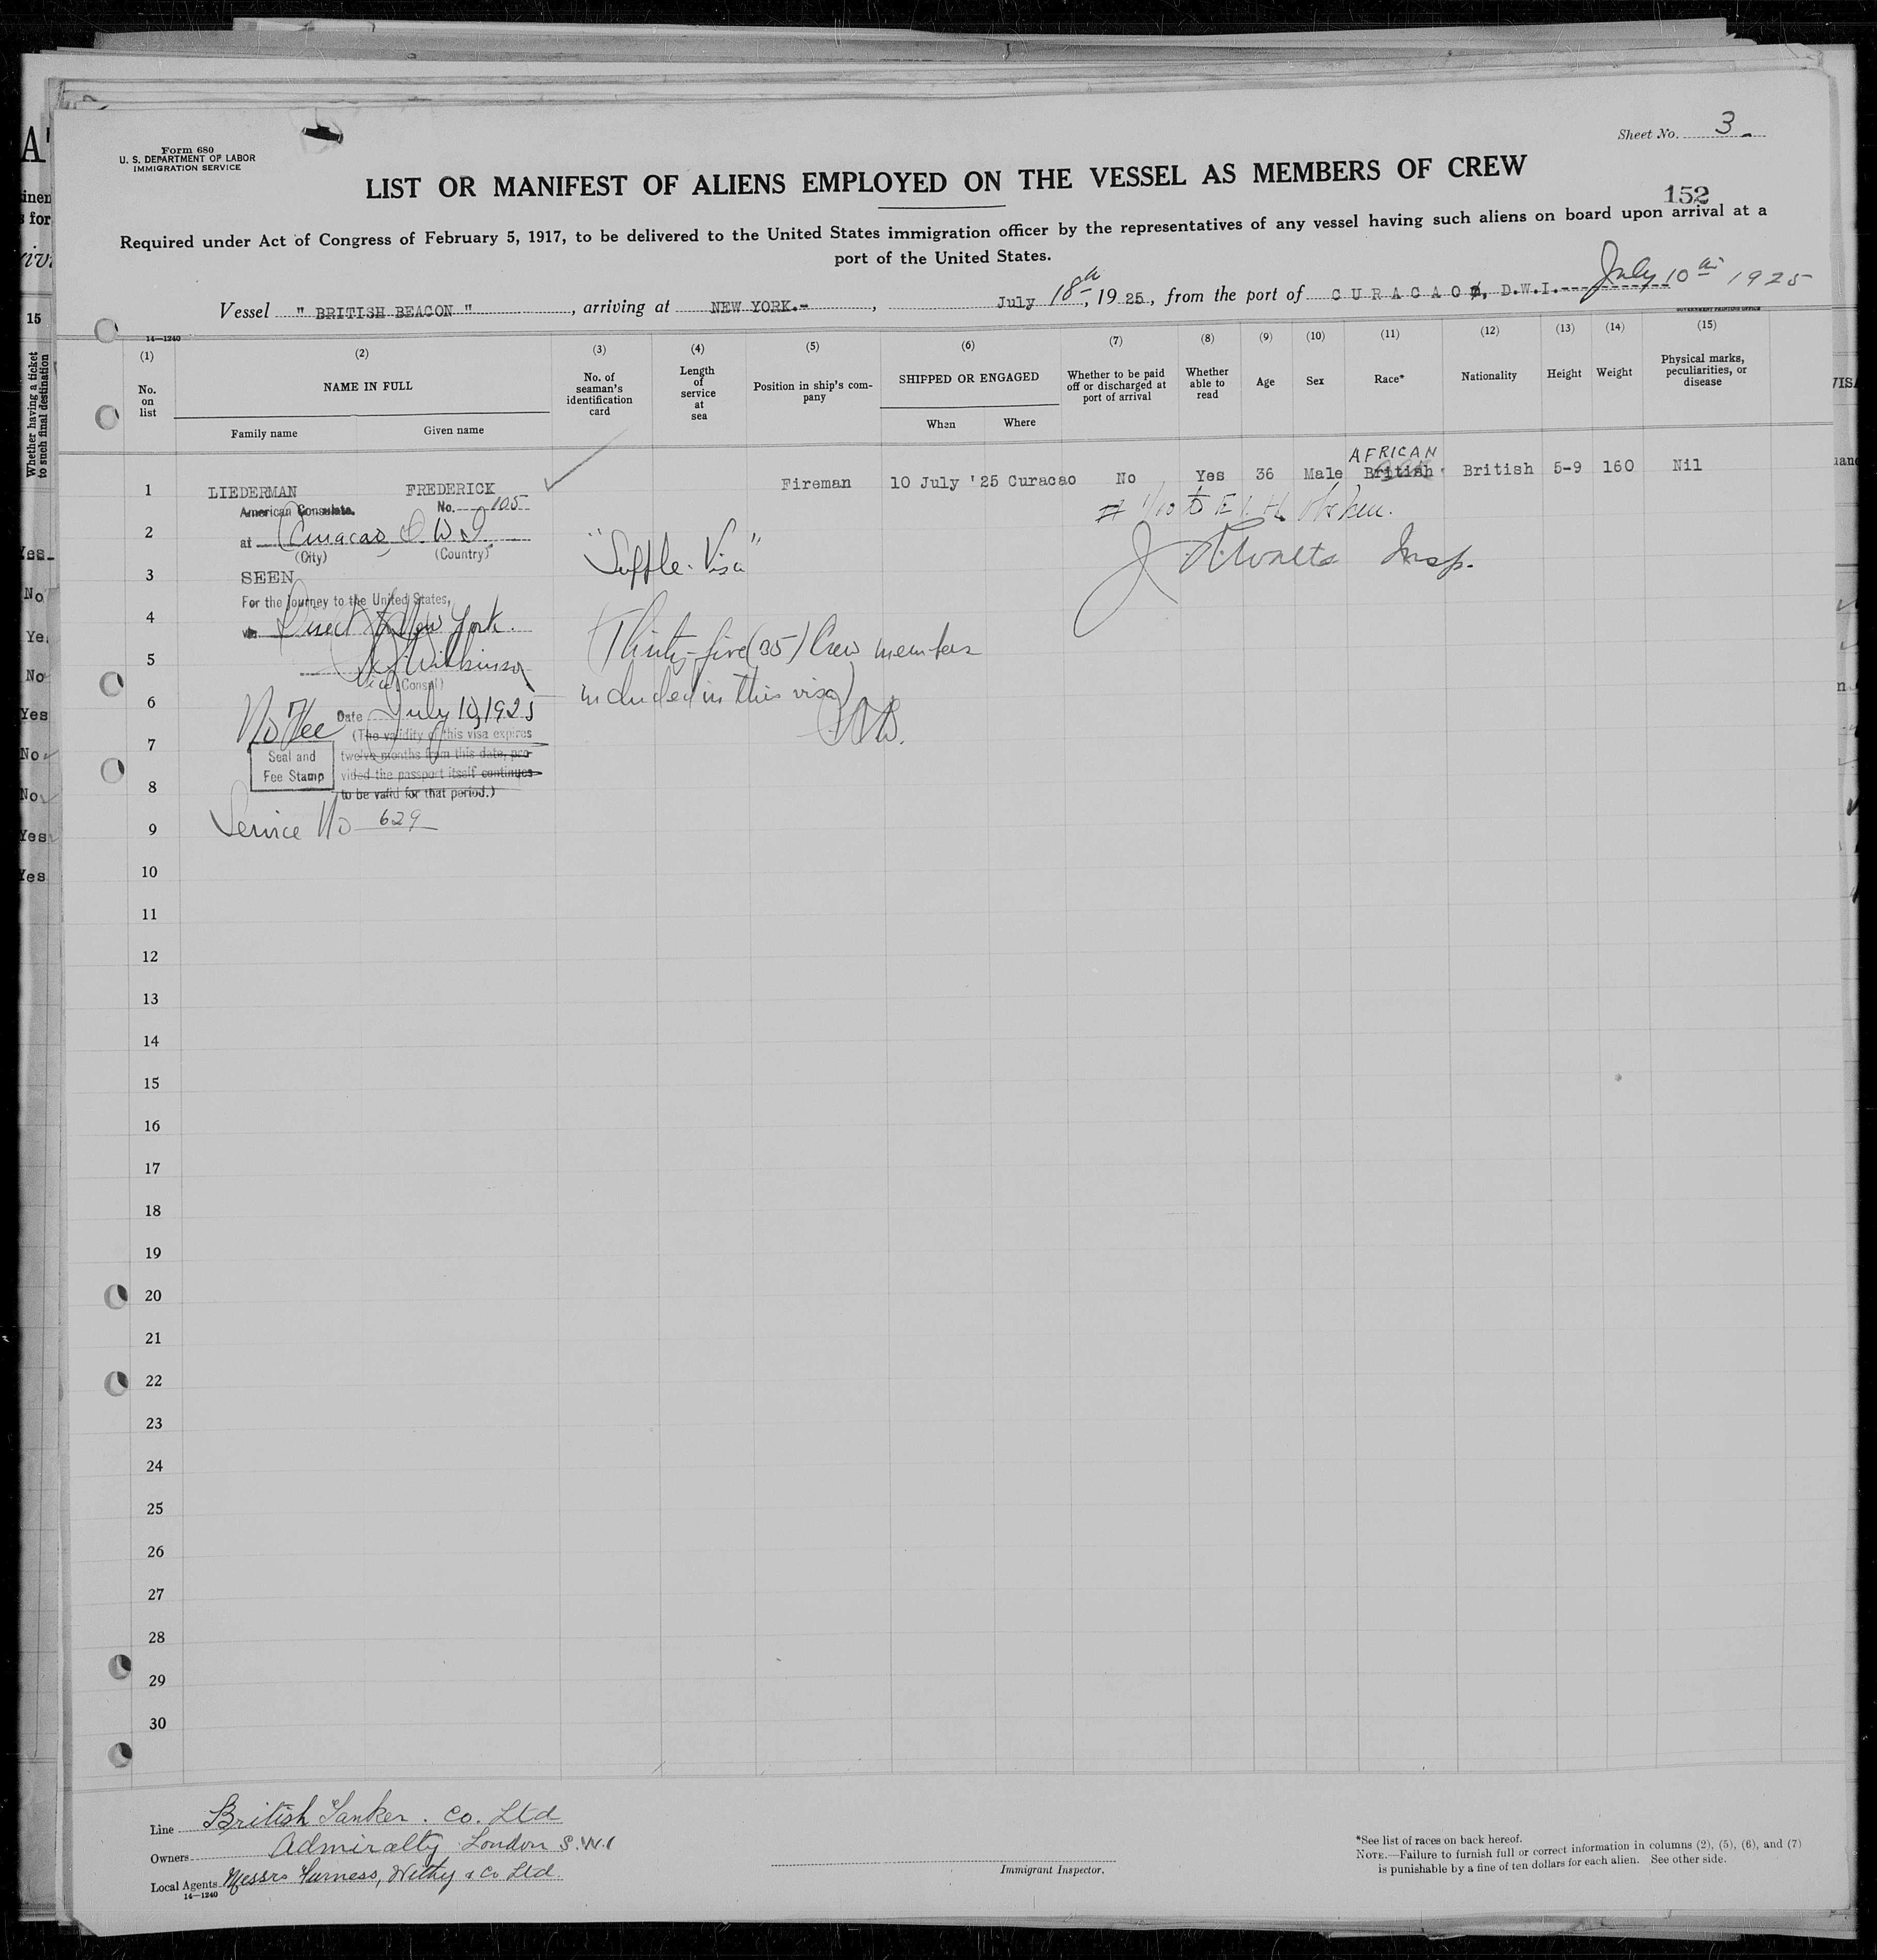 Form 680
U. S. DEPARTMENT OF LABOR
IMMIGRATION SERVICE
Sheet No. 3
LIST OR MANIFEST OF ALIENS EMPLOYED ON THE VESSEL AS MEMBERS OF CREW
152
Required under Act of Congress of February 5, 1917, to be delivered to the United States immigration officer by the representatives of any vessel having such aliens on board upon arrival at a
port of the United States.
Vessel " BRITISH BEACON ", arriving at NEW YORK.-, July 18th, 1925, from the port of CURACAO, D.W.I. July 10th 1925
14—1240
GOVERNMENT PRINTING OFFICE
(1) (2) (3) (4) (5) (6) (7) (8) (9) (10) (11) (12) (13) (14) (15)
No. on list
NAME IN FULL
Family name Given name
No. of seaman's identification card
Length of service at sea
Position in ship's company
SHIPPED OR ENGAGED
When Where
Whether to be paid off or discharged at port of arrival
Whether able to read
Age
Sex
Race*
Nationality
Height
Weight
Physical marks, peculiarities, or disease
AFRICAN
1 LIEDERMAN FREDERICK Fireman 10 July '25 Curacao No Yes 36 Male British British 5-9 160 Nil
American Consulate. No. 105
2
at Curacao, D.W.I.
(City) (Country)
"Supple. Visa"
Insp.
3
SEEN
For the journey to the United States,
4
via Direct to New York.
Thirty-five (35) Crew members
5
Wilkinson
Vice (Consul)
included in this visa)
6
No Fee Date July 10, 1925
7
(The validity of this visa expires
Seal and Fee Stamp
twelve months from this date, pro-
vided the passport itself continues
8
to be valid for that period.)
9
Service No 629
10
11
12
13
14
15
16
17
18
19
20
21
22
23
24
25
26
27
28
29
30
Line British Tanker. Co. Ltd
Owners Admiralty London S.W.1
Local Agents Messrs Furness, Withy & Co Ltd.
14—1240
Immigrant Inspector.
*See list of races on back hereof.
NOTE.—Failure to furnish full or correct information in columns (2), (5), (6), and (7)
is punishable by a fine of ten dollars for each alien. See other side.
15
Whether having a ticket
to such final destination
Yes
No
Ye
No
Yes
No
No
Yes
Yes